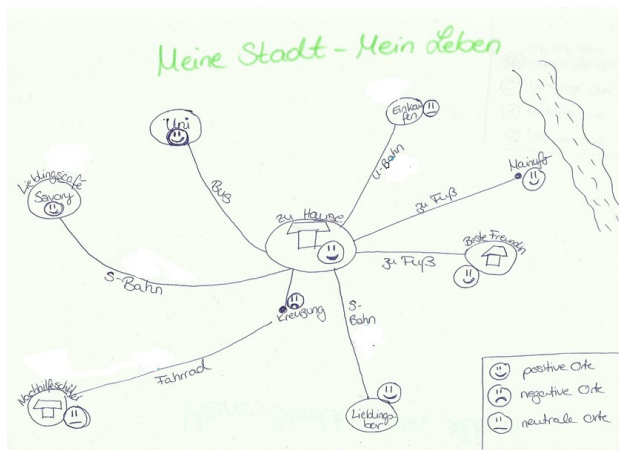 Meine Stadt - Mein Leben
Uni
Einkau-
fen
U-Bahn
Mainufer
Lieblingscafé
Savory
Bus
zu Fuß
zu Hause
Beste Freundin
zu Fuß
S-Bahn
S-
Bahn
Kreuzung
Fahrrad
Nachhilfeschüler
Lieblings-
bar
positive Orte
negative Orte
neutrale Orte